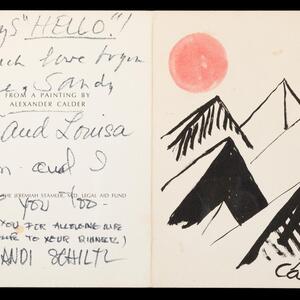 ys "HELLO"!
ch love from
Sandy
FROM A PAINTING BY
ALEXANDER CALDER
and Louisa
and I
THE JEREMIAH STAMLER, M.D. LEGAL AID FUND
YOU TOO-
YOU FOR ALLOWING ME
TO YOUR DINNER)
ANDI SCHILTZ
Ca